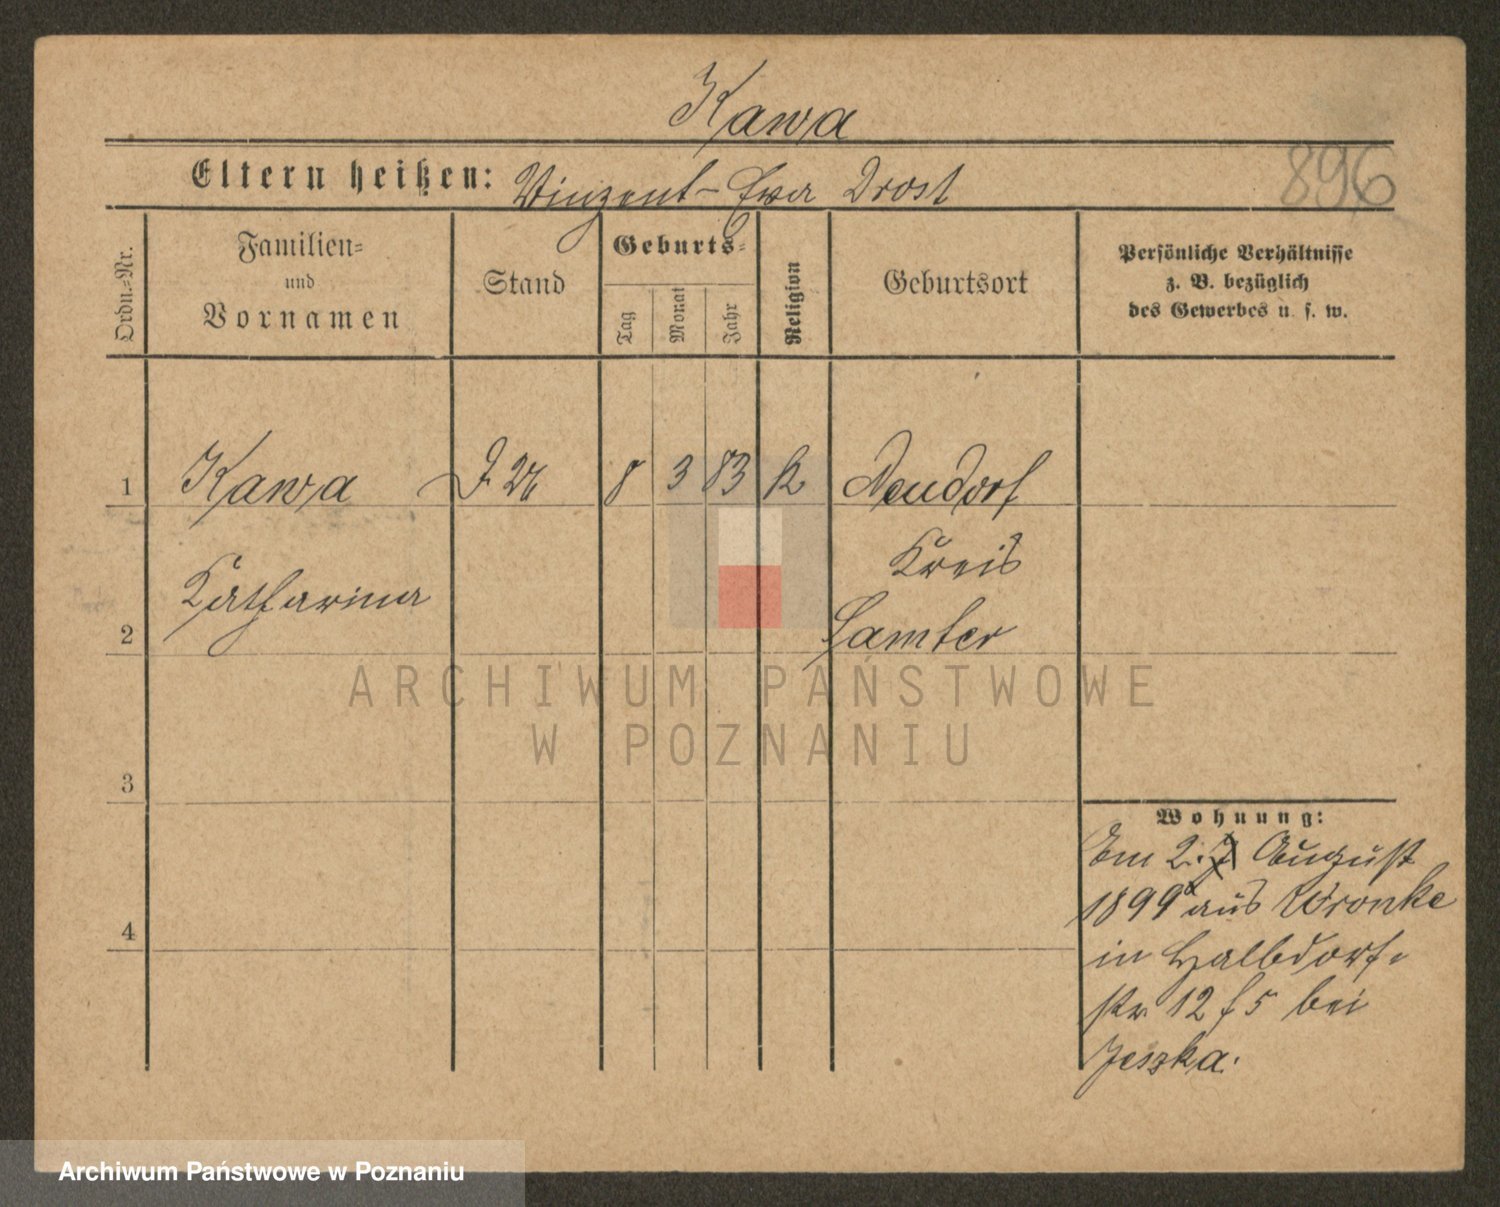 Kawa
896
Eltern heißen: Vinzent – Ewa Drost
Ordn.-Nr.
Familien-
und
Vornamen
Stand
Geburts-
Tag
Monat
Jahr
Religion
Geburtsort
Persönliche Verhältnisse
z. B. bezüglich
des Gewerbes u. s. w.
1 Kawa 8 3 83 K Neudorf
Kreis
Katharina
2 Samter
3
4
ARCHIWUM PAŃSTWOWE
W POZNANIU
Wohnung:
Am 2. August
1899 aus Wronke
in Halbdorf-
str 12 5 bei
Jeszka.
Archiwum Państwowe w Poznaniu